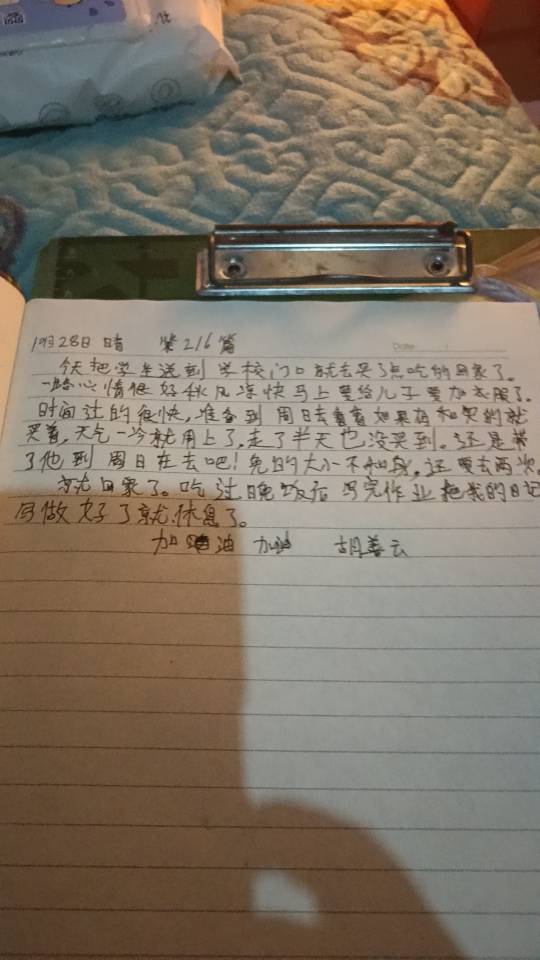 10月28日 晴 第216篇
Date
今天把学生送到学校门口就去买了点吃的回家了。
一路心情很好秋风凉快马上要给儿子要加衣服了.
时间过的很快,准备到周日去看看如果有和契的就
买着,天气一冷就用上了,走了半天也没买到.还是带
了他到周日在去吧!免的大小不和段,还要去两次.
就回家了。吃过晚饭后写完作业把我的日记
写做好了就休息了。
加油 加油 胡善云